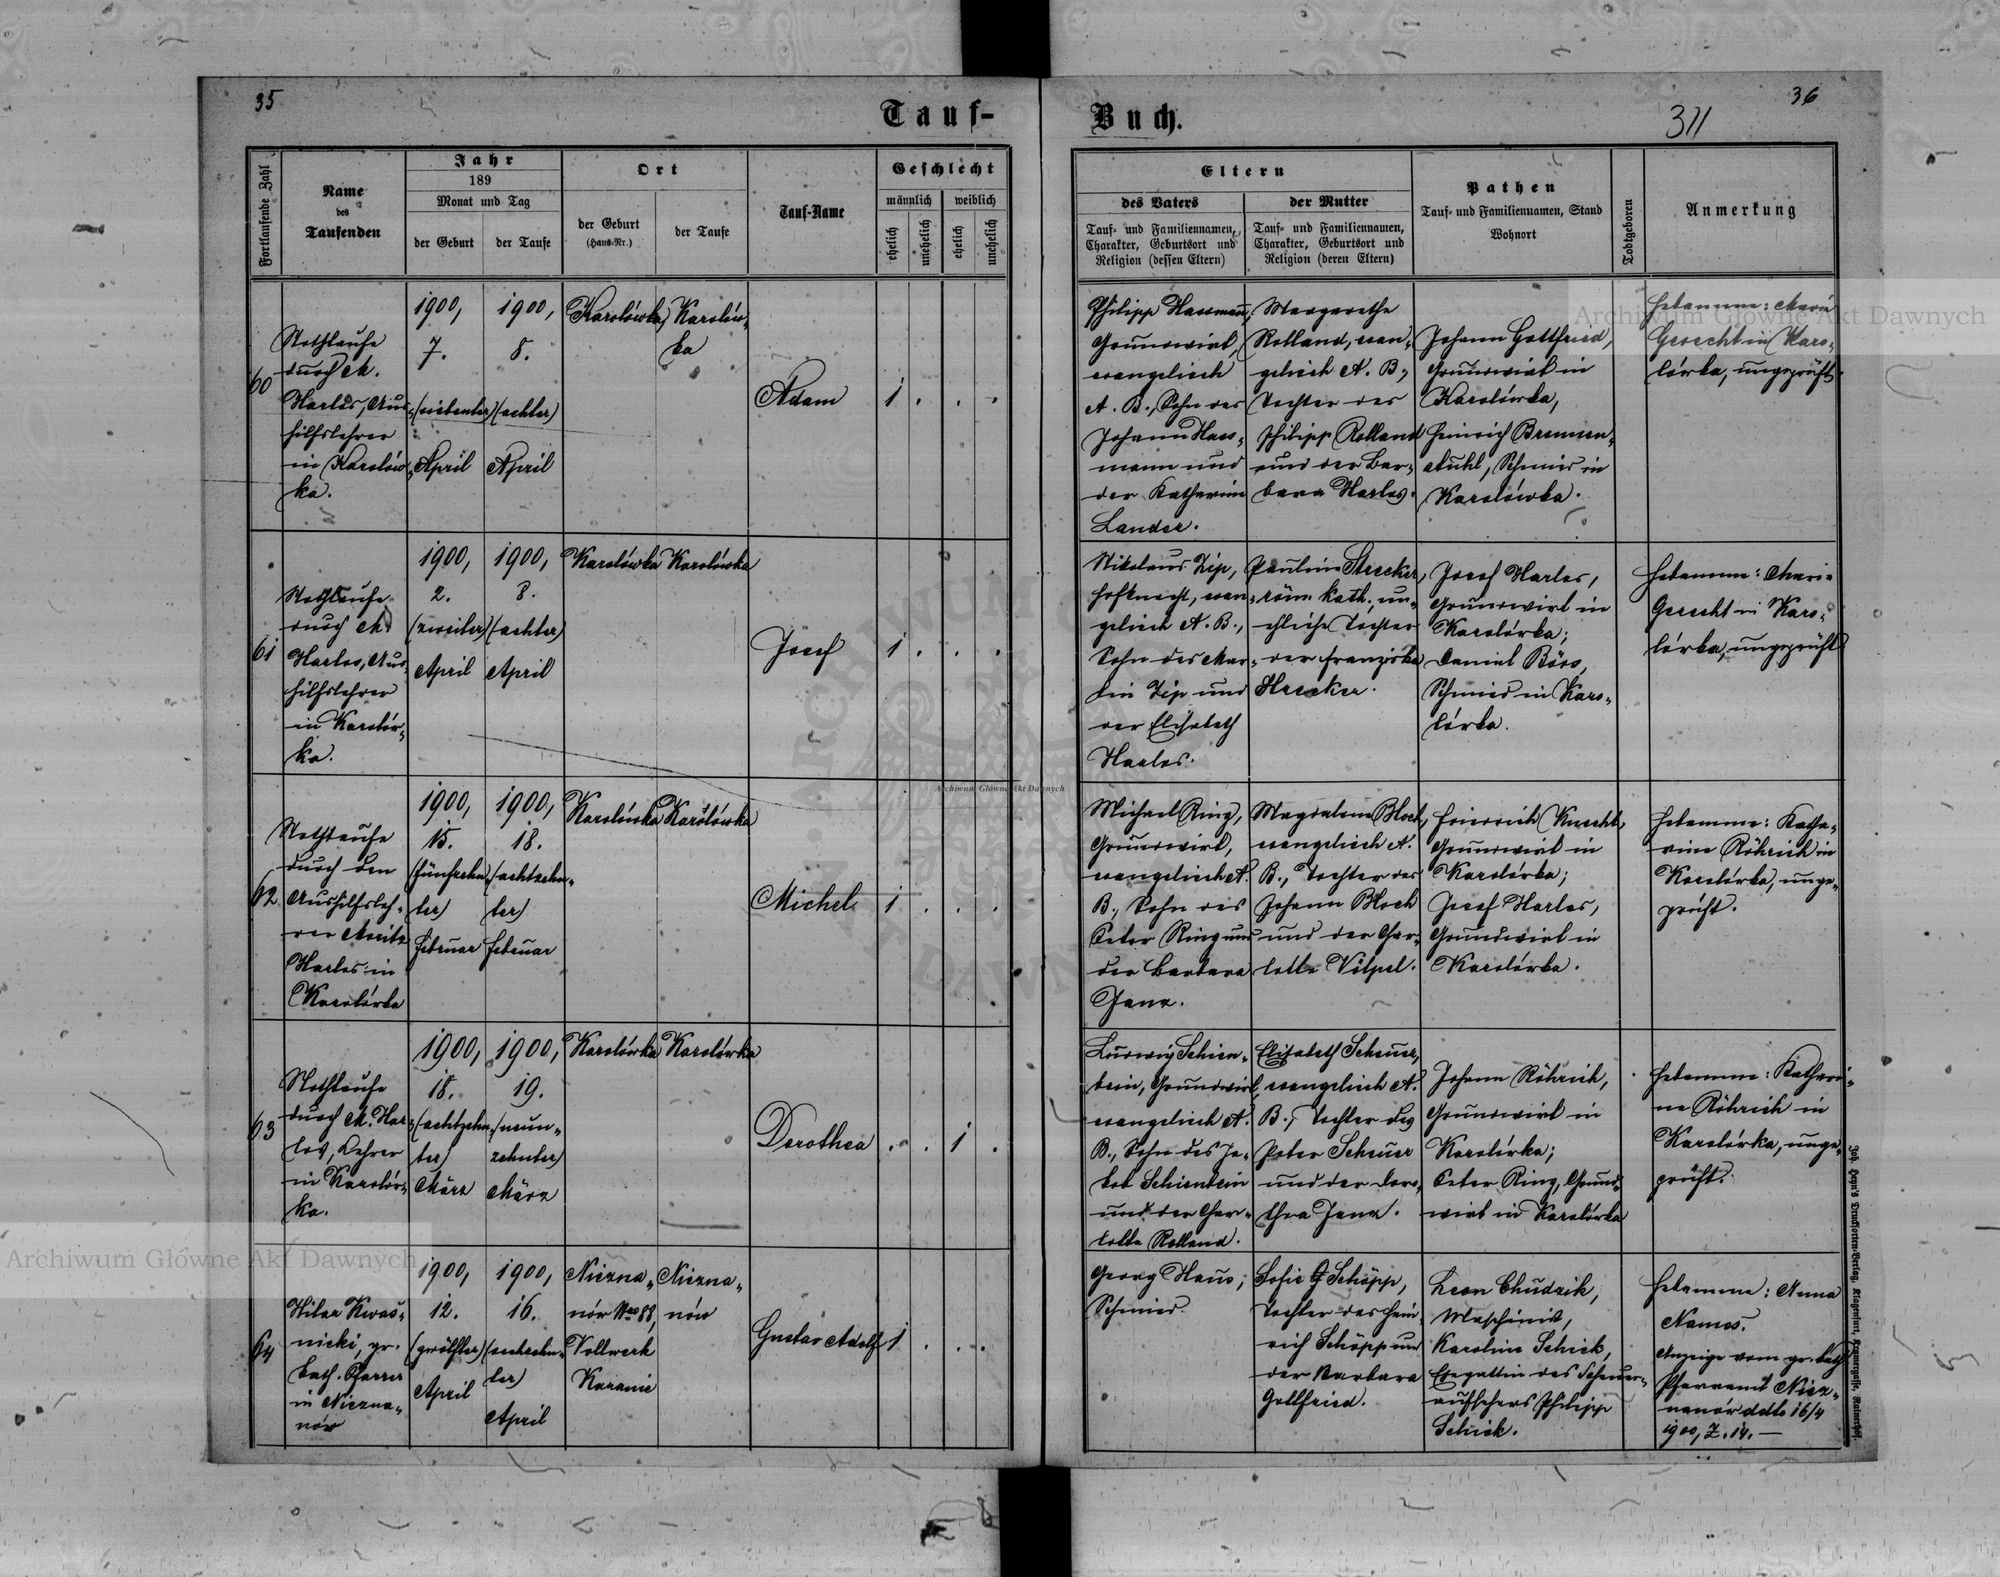 35
36
311
Tauf-
Buch.
Fortlaufende Zahl
Name
des
Taufenden
Jahr
189
Monat und Tag
der Geburt
der Taufe
Ort
der Geburt
(Haus-Nr.)
der Taufe
Tauf-Name
Geschlecht
männlich
weiblich
ehelich
unehelich
ehelich
unehelich
Eltern
des Vaters
Tauf- und Familiennamen,
Charakter, Geburtsort und
Religion (dessen Eltern)
der Mutter
Tauf- und Familiennamen,
Charakter, Geburtsort und
Religion (deren Eltern)
Pathen
Tauf- und Familiennamen, Stand
Wohnort
Todtgeboren
Anmerkung
60
Nothtaufe
durch M.
Harlos, Aus-
hilfslehrer
in Karolów-
ka.
1900,
7.
(siebenter)
April
1900,
8.
(achter)
April
Karolówka
Karolów-
ka
Adam
1 . . .
Philipp Hassmann,
Grundwirt,
evangelisch
A. B., Sohn des
Johann Hass-
mann und
der Katharina
Lander.
Margarethe
Rolland, evan-
gelisch A. B.,
Tochter des
Philipp Rolland
und der Bar-
bara Harlos.
Johann Gottfried,
Grundwirt in
Karolówka,
Heinrich Brennen-
stuhl, Schmied in
Karolówka.
Hebamme: Marie
Gerecht in Karo-
lówka, ungeprüft
61
Nothtaufe
durch M.
Harlos, Aus-
hilfslehrer
in Karolów-
ka.
1900,
2.
(zweiter)
April
1900,
8.
(achter)
April
Karolówka
Karolówka
Josef
1 . . .
Nikolaus Zip,
Hofknecht, evan-
gelisch A. B.,
Sohn des Mar-
tin Zip und
der Elisabeth
Harlos.
Pauline Strecker,
röm. kath., un-
ehliche Tochter
der Franziska
Strecker.
Josef Harlos,
Grundwirt in
Karolówka;
Daniel Börs,
Schmied in Karo-
lówka.
Hebamme: Marie
Gerecht in Karo-
lówka, ungeprüft
62
Nothtaufe
durch den
Aushilfsleh-
rer Moritz
Harlos in
Karolówka
1900,
15.
(fünfzehn-
ter)
Februar
1900,
18.
(achtzehn-
ter)
Februar
Karolówka
Karolówka
Michel
1 . . .
Michael Ring,
Grundwirt,
evangelisch A.
B., Sohn des
Peter Ring und
der Barbara
Janz.
Magdalena Bloch,
evangelisch A.
B., Tochter des
Johann Bloch
und der Char-
lotte Vilpel.
Friedrich Knecht,
Grundwirt in
Karolówka;
Josef Harlos,
Grundwirt in
Karolówka.
Hebamme: Katha-
rine Röhrich in
Karolówka, unge-
prüft.
63
Nothtaufe
durch M. Har-
los, Lehrer
in Karolów-
ka.
1900,
18.
(achtzehn-
ter)
März
1900,
19.
(neun-
zehnter)
März
Karolówka
Karolówka
Dorothea
. . 1 .
Ludwig Schien-
bein, Grundwirt,
evangelisch A.
B., Sohn des Ja-
kob Schienbein
und der Char-
lotte Rolland.
Elisabeth Scheuer,
evangelisch A.
B., Tochter des
Peter Scheuer
und der Doro-
thea Janz.
Johann Röhrich,
Grundwirt in
Karolówka;
Peter Ring, Grund-
wirt in Karolówka
Hebamme: Kathari-
ne Röhrich in
Karolówka, unge-
prüft.
64
Hilar Kwas-
nicki, gr.
kath. Pfarrer
in Niezna-
nów
1900,
12.
(zwölfter)
April
1900,
16.
(sechzehn-
ter)
April
Niezna-
nów Nro 88,
Vollwerk
Karanie
Niezna-
nów
Gustav Adolf
1 . . .
Georg Haus,
Schmied.
Sofie Schöpp,
Tochter des Hein-
rich Schöpp und
der Barbara
Gottfried.
Leon Chudzik,
Maschinist,
Karoline Schick,
Ehegattin des Scheuer-
aufsehers Philipp
Schick.
Hebamme: Anna
Names.
Anzeige vom gr. kath
Pfarramt Niez-
nanów ddto 16/4
1900, Z. 14. —
Joh. Heyn's Drucksorten-Verlag, Klagenfurt, Kramergasse, Rainerhof.
Archiwum Główne Akt Dawnych
Archiwum Główne Akt Dawnych
Archiwum Główne Akt Dawnych